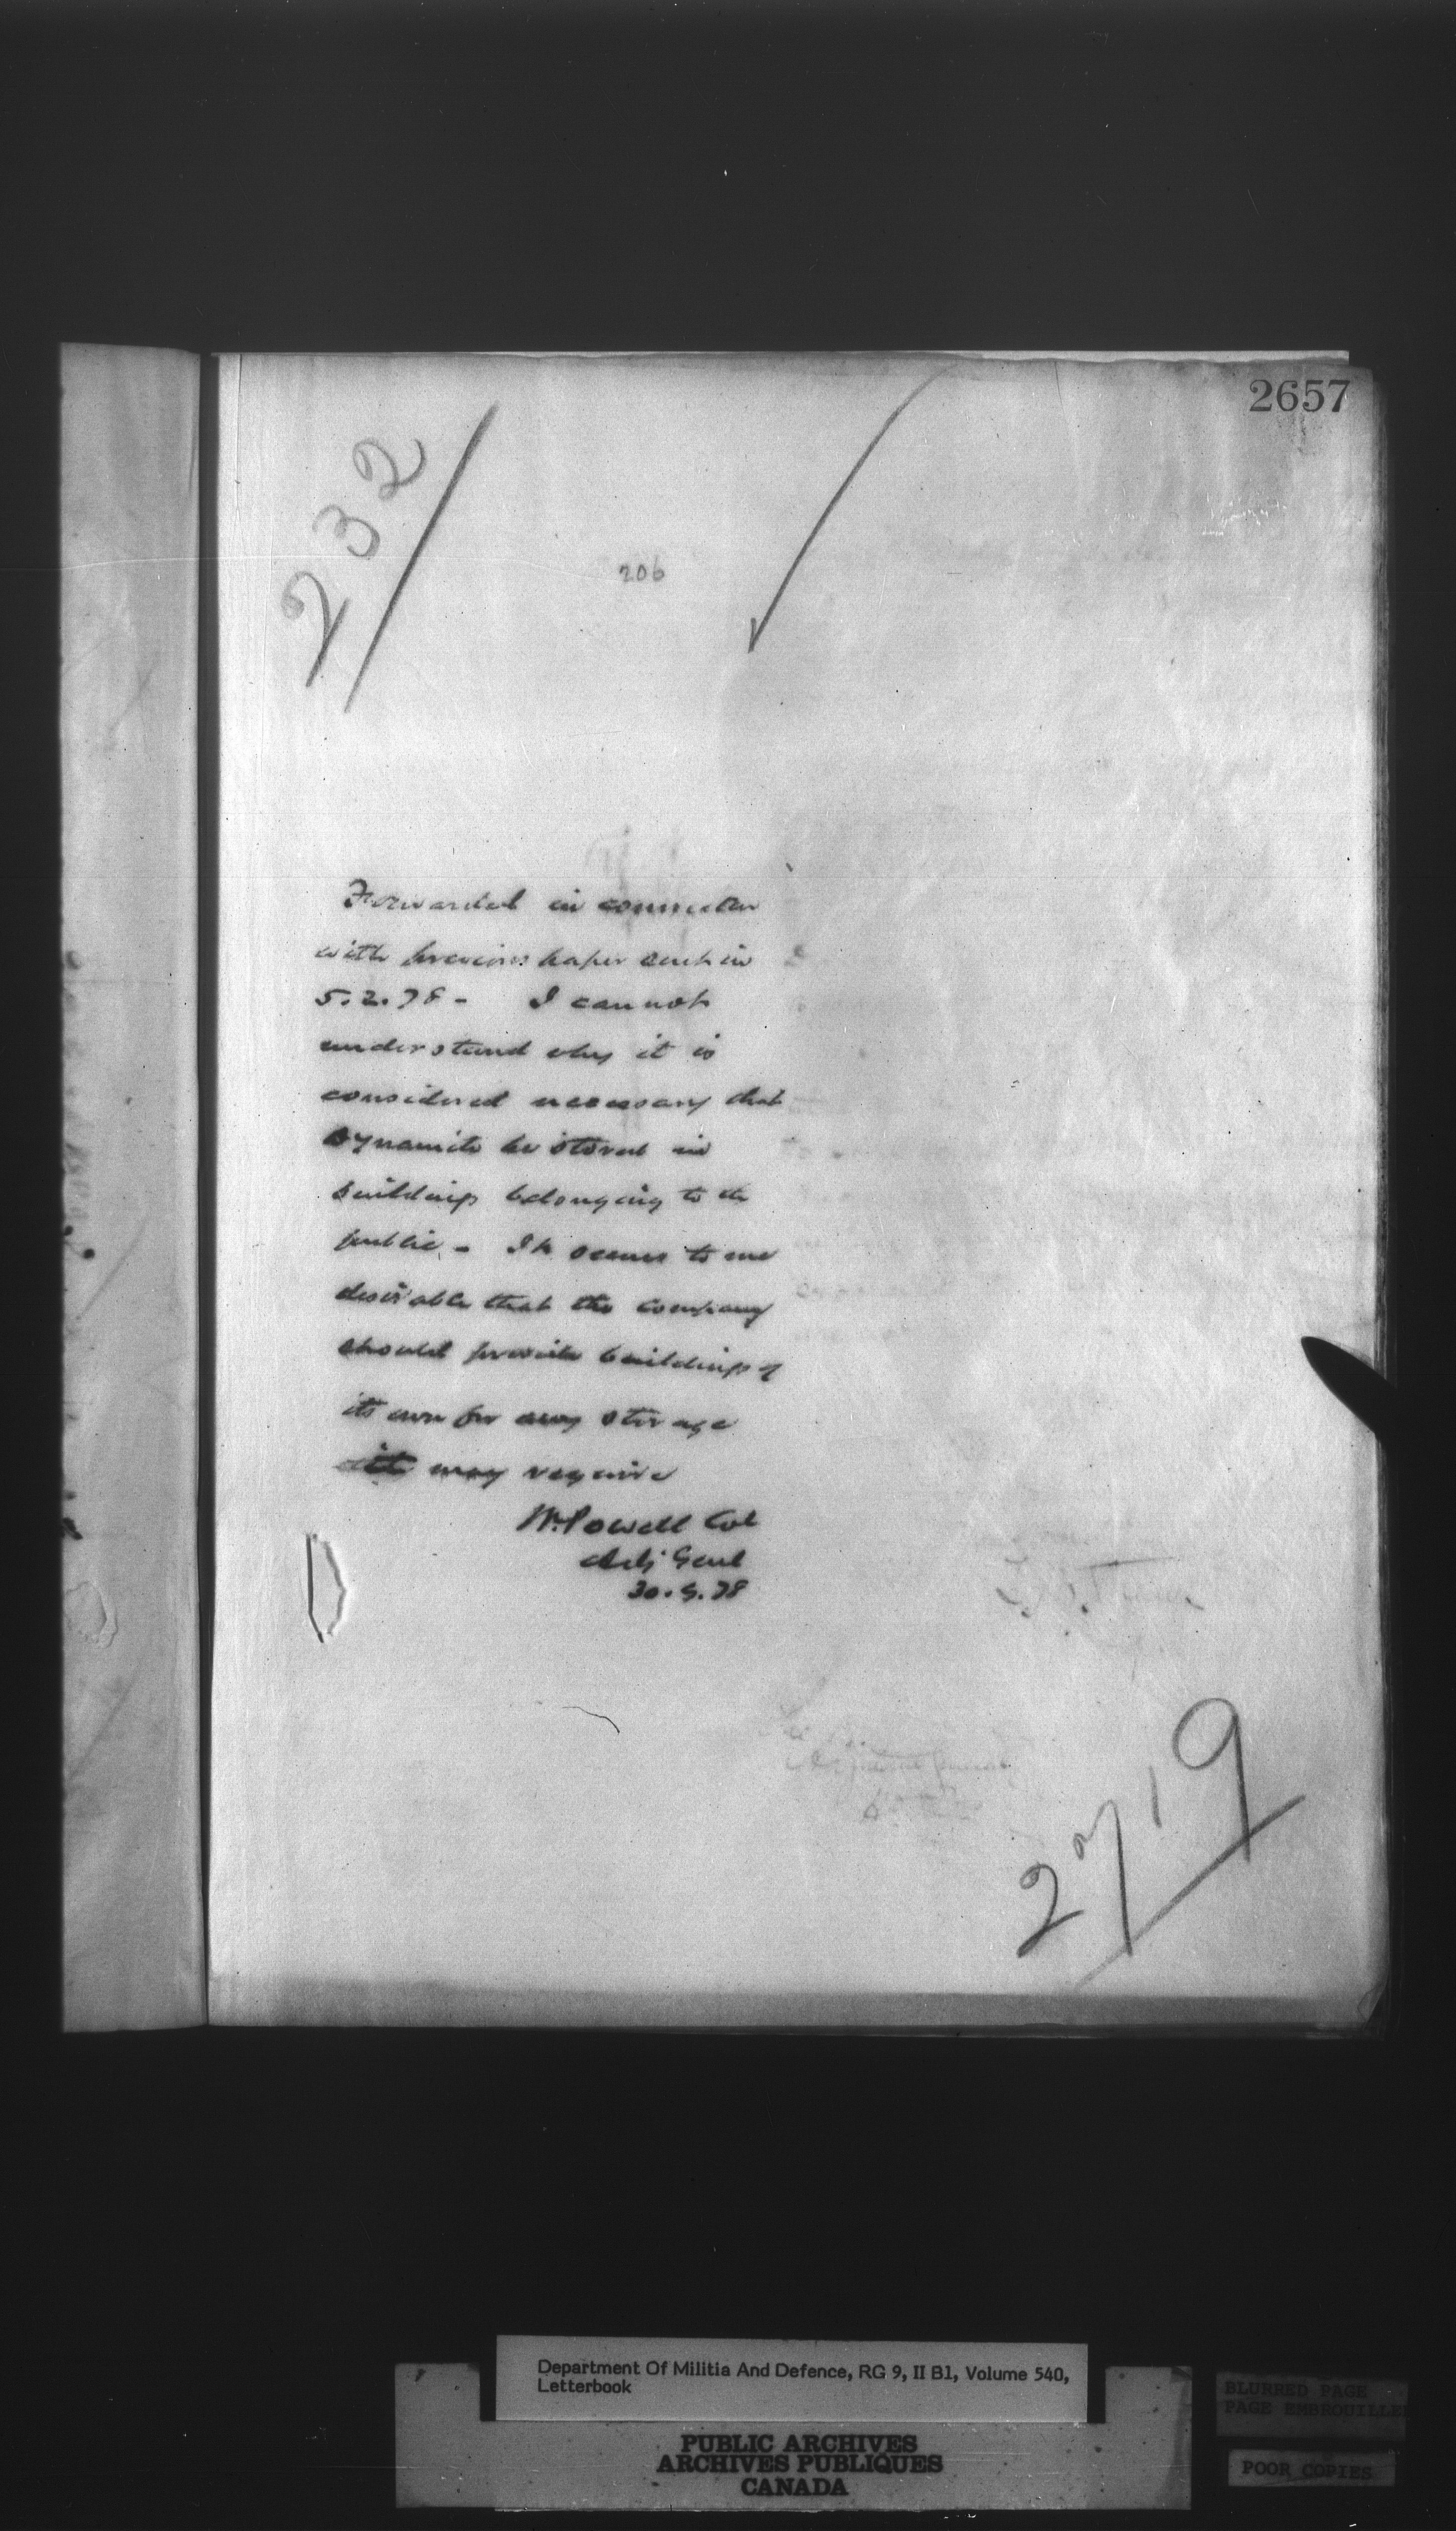 2657
232
206
Forwarded in connection
with previous paper sent in
5.2.78 - I cannot
understand why it is
considered necessary that
Dynamite be stored in
buildings belonging to the
public - It seems to me
desirable that the company
should provide buildings of
its own for any storage
it may require
W. Powell Col
Adj Genl
30.9.78
2719
Department Of Militia And Defence, RG 9, II B1, Volume 540,
Letterbook
PUBLIC ARCHIVES
ARCHIVES PUBLIQUES
CANADA
BLURRED PAGE
PAGE EMBROUILLEE
POOR COPIES